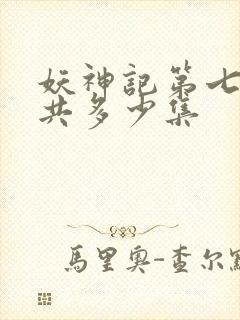 妖神記第七
共多少集
馬里奧-查尔